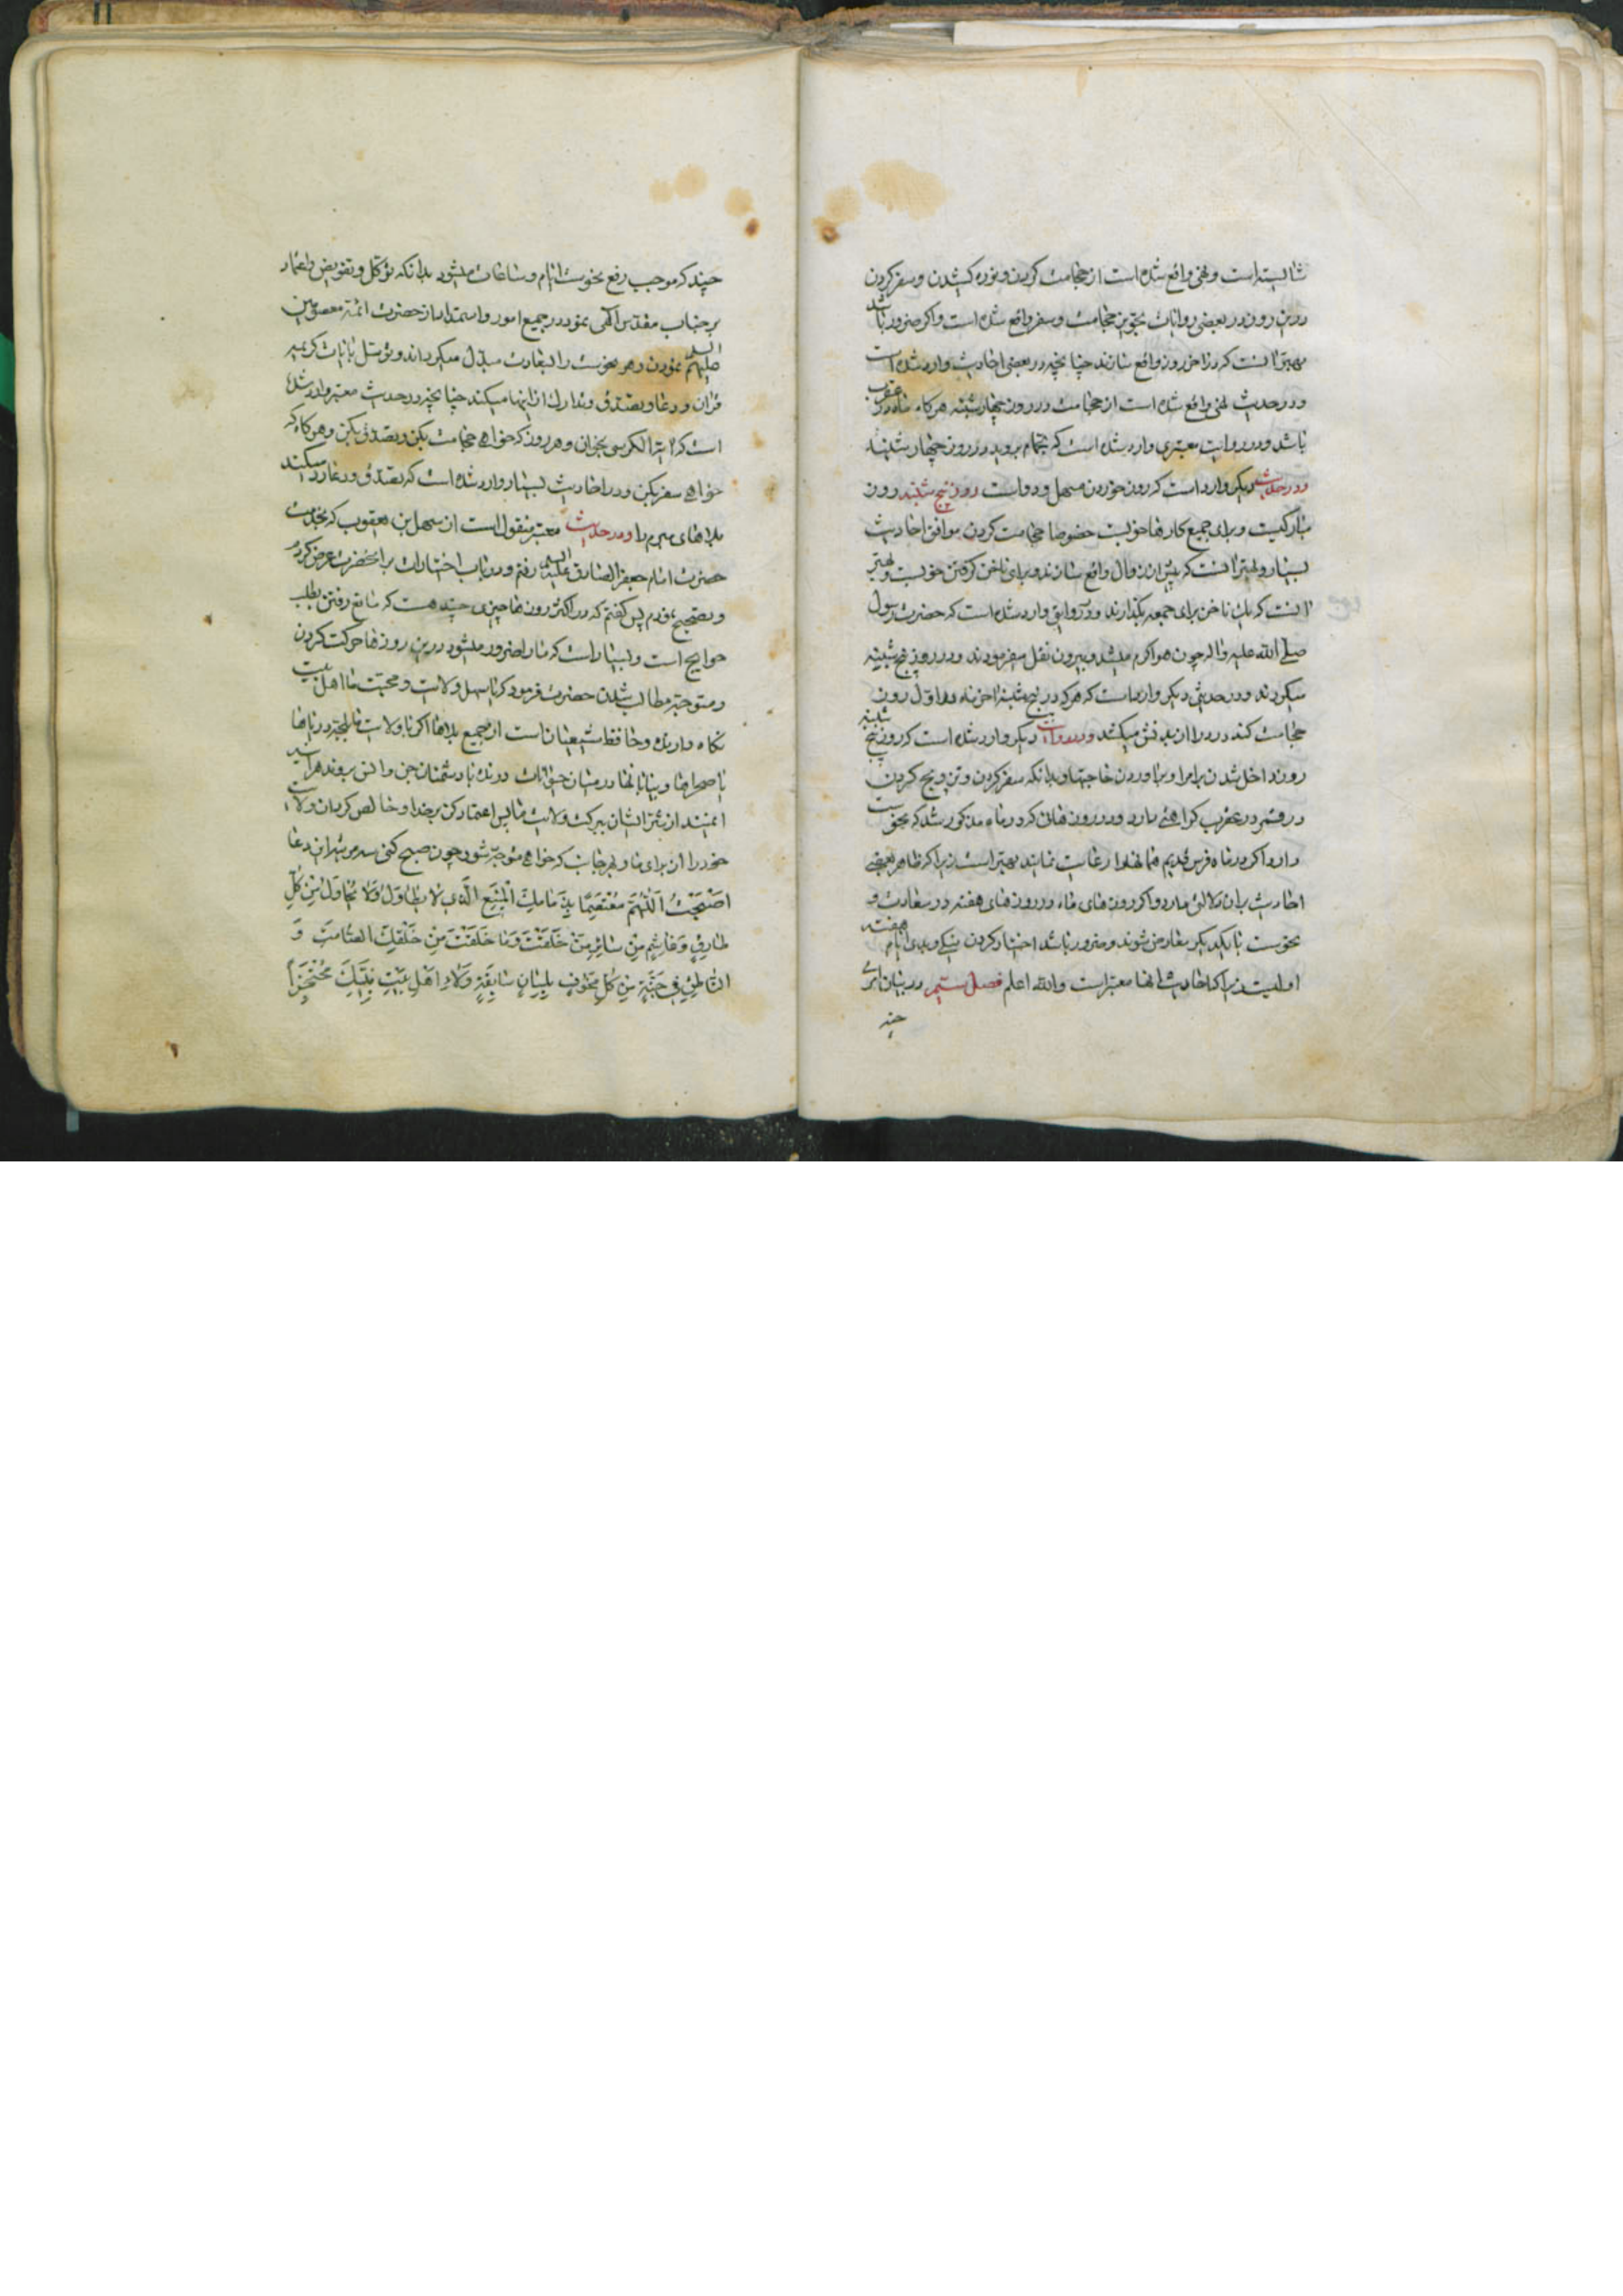 شایسته است و نهی واقع شده است از حجامت کردن و نوره کشیدن و سفر کردن
درین روز و در بعضی روایات تجویز حجامت و سفر واقع شده است و اگر ضرور باشد
بهتر آنست که در آخر روز واقع سازند چنانچه در بعضی احادیث وارد شده است
و در حدیث نهی واقع شده است از حجامت در روز چهارشنبه هرگاه ماه در عقرب
باشد و در روایت معتبری وارد شده است که بحمام بروید در روز چهارشنبه
و در حدیث دیگر وارد است که روز خوردن مسهل و دواست روز پنج شنبه روز
مبارکیست و برای جمیع کارها خوبست خصوصا حجامت کردن موافق احادیث
بسیار و بهتر آنست که پیش از زوال واقع سازند و برای ناخن گرفتن خوبست و بهتر
آنست که یک ناخن برای جمعه بگذارند و در روایتی وارد شده است که حضرت رسول
صلی الله علیه واله چون هوا گرم میشد و بیرون نقل میفرمودند در روز پنج شنبه
میکردند و در حدیثی دیگر وارد است که هر که در پنج شنبه آخر ماه در اول روز
حجامت کند درد را از بدنش میکشد و در روایت دیگر وارد شده است که روز پنج شنبه
روز داخل شدن بر امرا و برآوردن حاجتها و بدانکه سفر کردن و تزویج کردن
در قمر در عقرب کراهتی دارد و در روزهائی که در ماه مذکور شد که نحوست
دارد اگر در ماه فرس قدیم همانها را رعایت نمایند بهتر است زیرا که ظاهر بعضی
احادیث بر آن دلالت دارد و اگر روزهای ماه و روزهای هفته در سعادت و
نحوست با یکدیگر معارض شوند و ضرور باشد اختیار کردن نیکی و بدی ایام هفته
اولیست زیرا که احادیث آنها معتبر است والله اعلم فصل ستیم در بیان امری
چند
چند که موجب رفع نحوست ایام و ساعات میشود بدانکه توکل و تفویض و اعتماد
بر جناب مقدس الهی نمودن در جمیع امور و استمداد از حضرت ائمه معصومین
علیهم السلم نمودن و هر نحوست را بسعادت مبدل میگرداند و توسل بآیات کریمه
قرآن و دعا و تصدق و تدارک از اینها میکند چنانچه در حدیث معتبر وارد شده
است که آیة الکرسی بخوان و هر روز که خواهی حجامت بکن و تصدق بکن و هرگاه که
خواهی سفر بکن و در احادیث بسیار وارد شده است که تصدق و دعا رد میکند
بلاهای مبرم را و در حدیث معتبر منقول است از سهل بن یعقوب که بخدمت
حضرت امام جعفر الصادق علیه السلم رفتم و در باب اختیارات بر آنحضرت عرض کردم
و تصحیح نمودم پس گفتم که در اکثر روزها چیزی چند هست که مانع رفتن بطلب
حوایج است و بسیار است که ما را ضرور میشود درین روزها حرکت کردن
و متوجه مطالب شدن حضرت فرمود که ای سهل ولایت و محبت ما اهل بیت
نگاه دارنده و حافظ شیعیان ماست از جمیع بلاها اگر با ولایت ما در لجه دریاها
یا صحراها و بیابانها در میان حیوانات درنده یا دشمنان جن و انس بروند هرآینه
ایمنند از شر ایشان ببرکت ولایت ما پس اعتماد کن بر خدا و خالص گردان ولایت
خود را از برای ما و بهر جانب که خواهی متوجه شو و چون صبح کنی سه مرتبه این دعا
اَصْبَحْتُ اَللّهُمَّ مُعْتَصِمًا بِذِمَامِكَ الْمَنِيعِ الَّذِي لَا يُطَاوَلُ وَلَا يُحَاوَلُ مِنْ كُلِّ
طَارِقٍ وَغَاشِمٍ مِنْ سَائِرِ مَنْ خَلَقْتَ وَمَا خَلَقْتَ مِنْ خَلْقِكَ الصَّامِتِ وَ
النَّاطِقِ فِي جُنَّةٍ مِنْ كُلِّ مَخُوفٍ بِلِبَاسٍ سَابِغَةٍ وَلَاءِ اَهْلِ بَيْتِ نَبِيِّكَ مُحْتَجِزاً